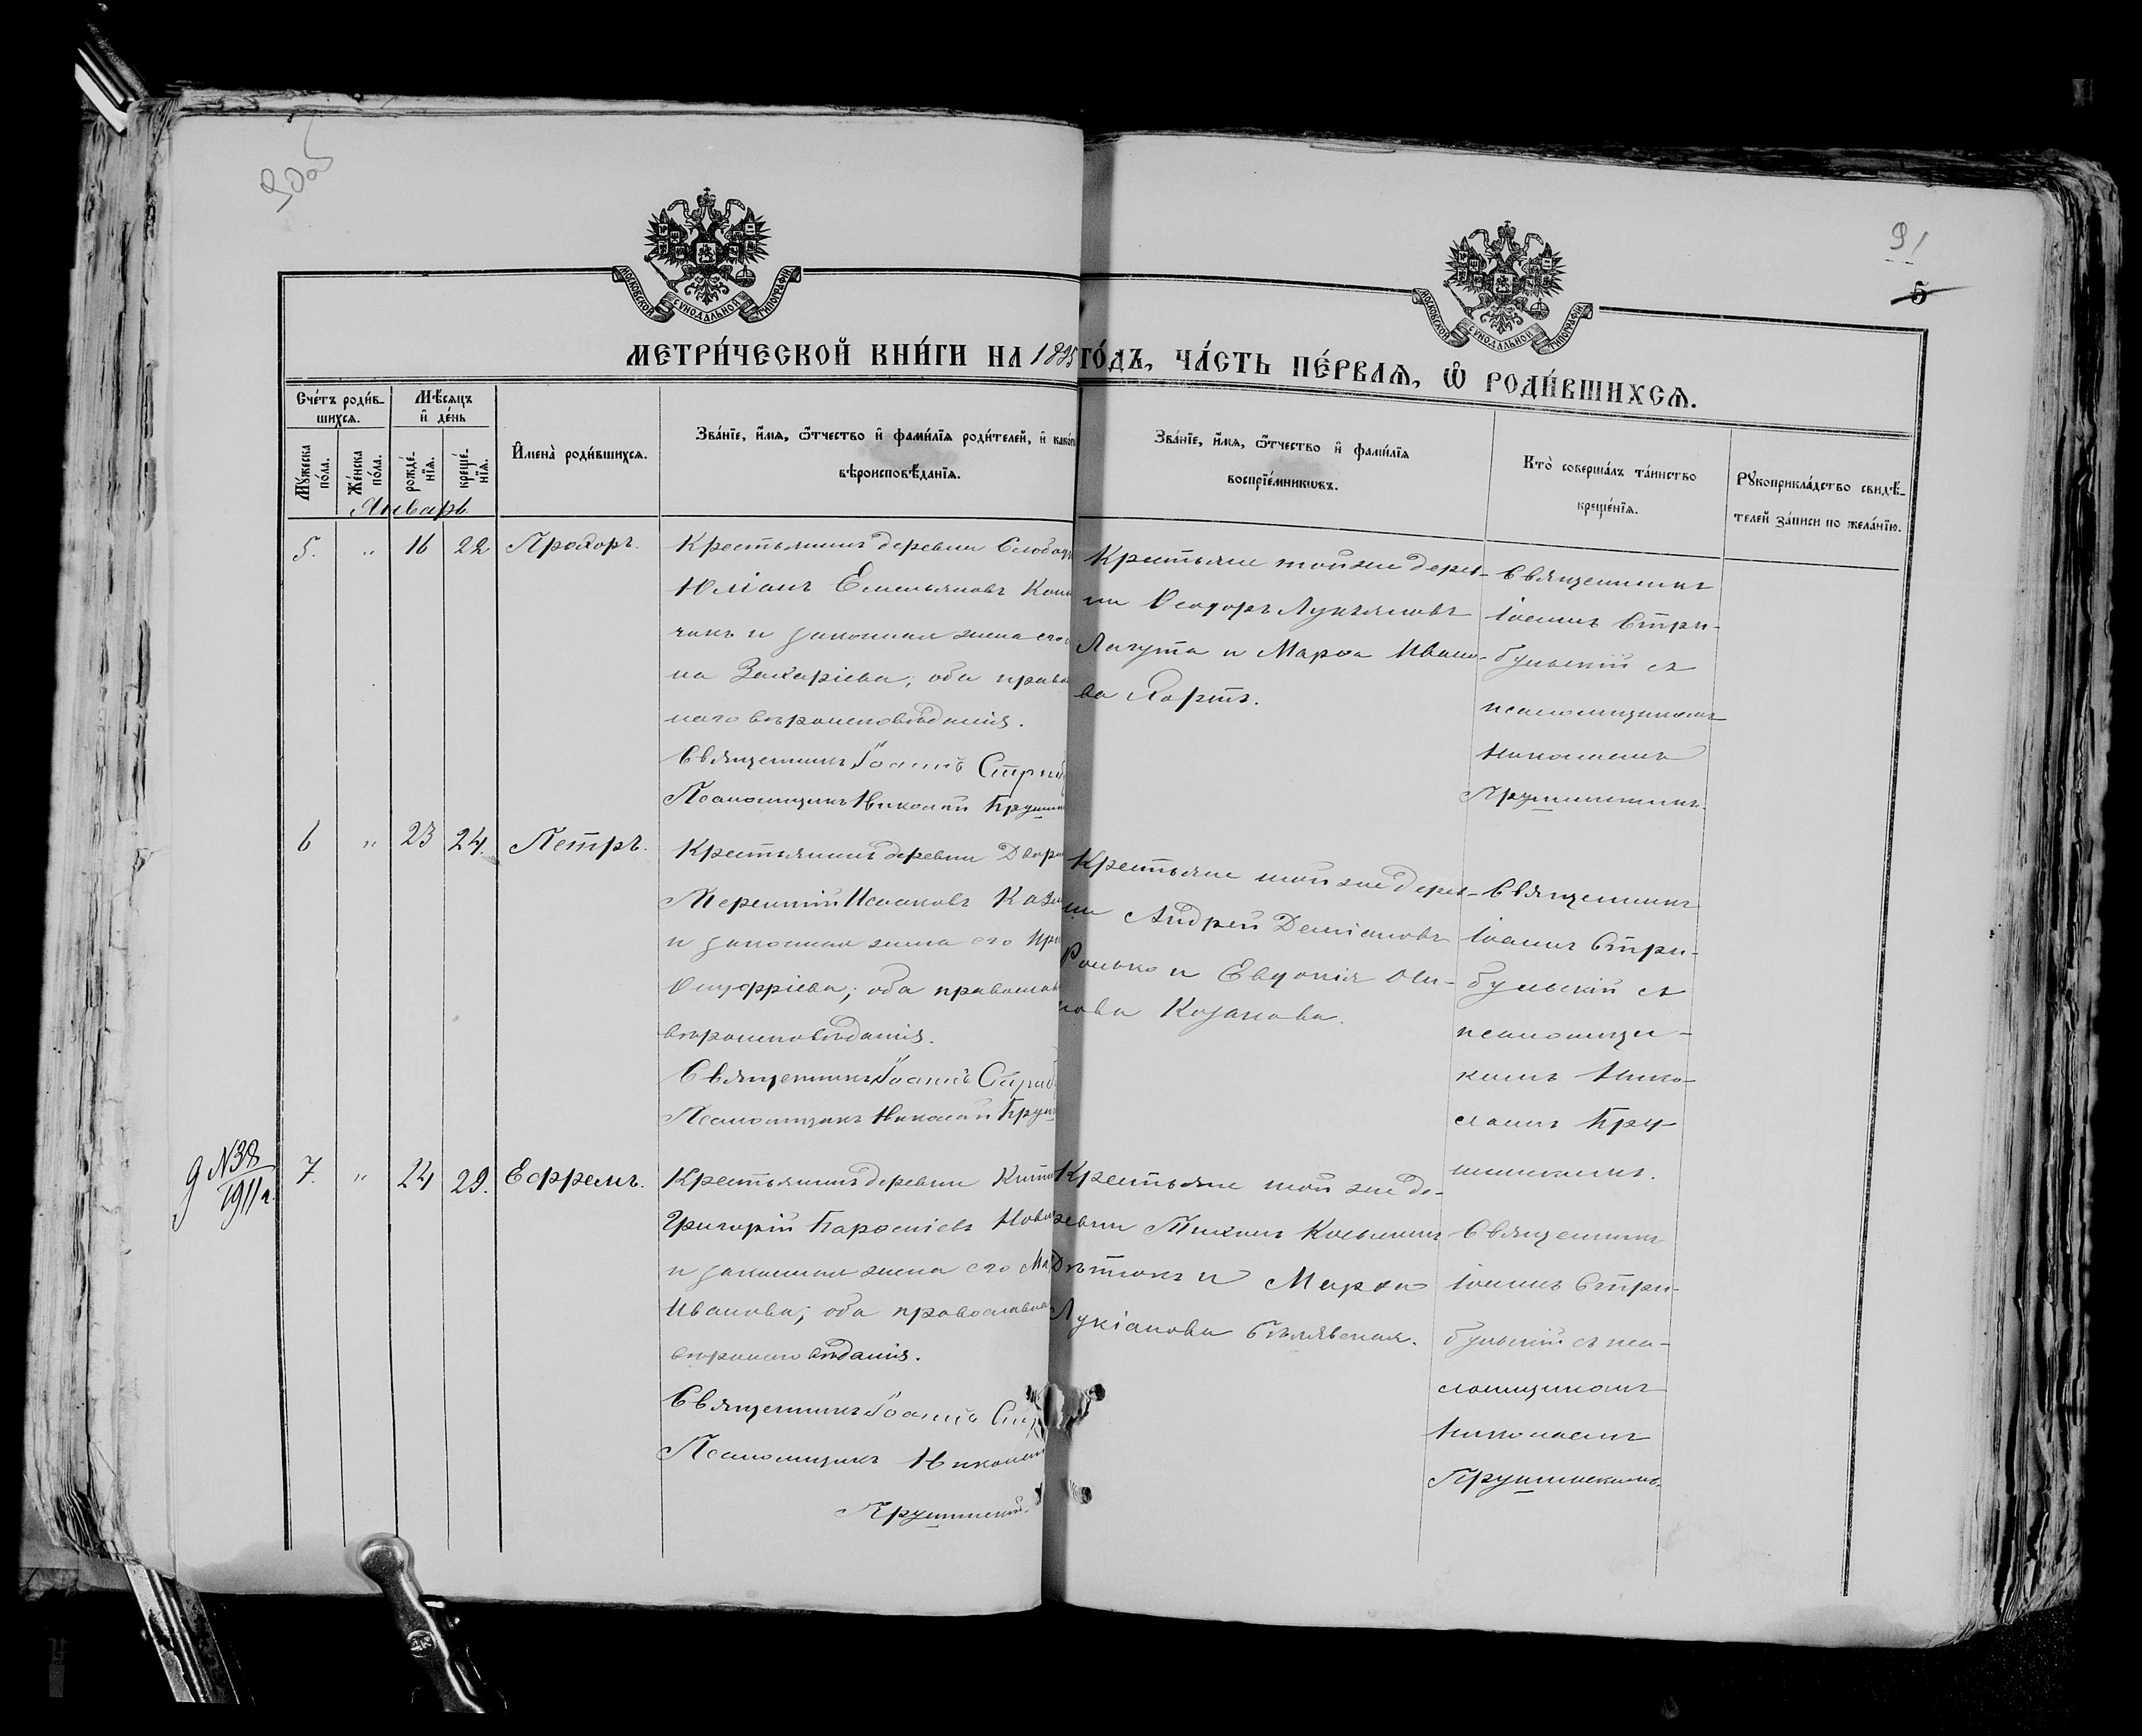 90об
91
5
МОСКОВСКОЙ СУНОДАЛЬНОЙ ТИПОГРАФІИ
МОСКОВСКОЙ СУНОДАЛЬНОЙ ТИПОГРАФІИ
МЕТРИ́ЧЕСКОЙ КНИ́ГИ НА 1895 ГО́ДЪ, ЧА́СТЬ ПЕ́РВАѦ, Ѽ РОДИ́ВШИХСѦ.
Сче́тъ роди́в-
шихсѧ.
Мѣ́сѧцъ
и҆ де́нь
Му́жеска
по́ла.
Же́нска
по́ла.
рожде́-
нїѧ.
креще́-
нїѧ.
И҆мена̀ роди́вшихсѧ.
Зва́нїе, и҆́мѧ, ѻ҆́тчество и҆ фами́лїѧ роди́телей, и҆ како́гѡ
вѣроисповѣ́данїѧ.
Зва́нїе, и҆́мѧ, ѻ҆́тчество и҆ фами́лїѧ
воспрїе́мникѡвъ.
Кто̀ соверша́лъ та́инство
креще́нїѧ.
Рꙋкоприкла́дство свидѣ́-
телей за́писи по жела́нїю.
Январь
5. " 16 22 Прохоръ.
Крестьянинъ деревни Слобод
Юліанъ Емельяновъ Кон
чикъ и законная жена его
на Захаріева; оба право
наго вѣроисповѣданія.
Священникъ Іоаннъ Стриб
Псаломщикъ Николай Пруш
Крестьяне той же дерев-
ни Ѳеодоръ Лукьяновъ
Лагута и Марѳа Ивано-
ва Хортъ.
Священникъ
Іоаннъ Стри-
бульскій съ
псаломщикомъ
Николаемъ
Прушинскимъ.
6 " 23 24. Петръ.
Крестьянинъ деревни Двор
Терентій Исааковъ Каза
и законная жена его Ири
Онуфріева; оба православ
вѣроисповѣданія.
Священникъ Іоаннъ Стриб
Псаломщикъ Николай Пруш
Крестьяне той же дерев-
ни Андрей Деміановъ
Ромько и Евдокія Оси-
пова Козакова.
Священникъ
Іоаннъ Стри-
бульскій съ
псаломщи-
комъ Нико-
лаемъ Пру-
шинскимъ.
9 №38
1911 г.
7. " 24 29. Ефремъ.
Крестьянинъ деревни
Григорій Парѳеніевъ Нов
и законная жена его Ма
Иванова; оба православна
вѣроисповѣданія.
Священникъ Іоаннъ Стр
Псаломщикъ Николай
Прушинскій.
Крестьяне той же де-
ревни Тихонъ Косьминъ
и Марѳа
Лукіанова Бѣлявская.
Священникъ
Іоаннъ Стри-
бульскій съ пса-
ломщикомъ
Николаемъ
Прушинскимъ.